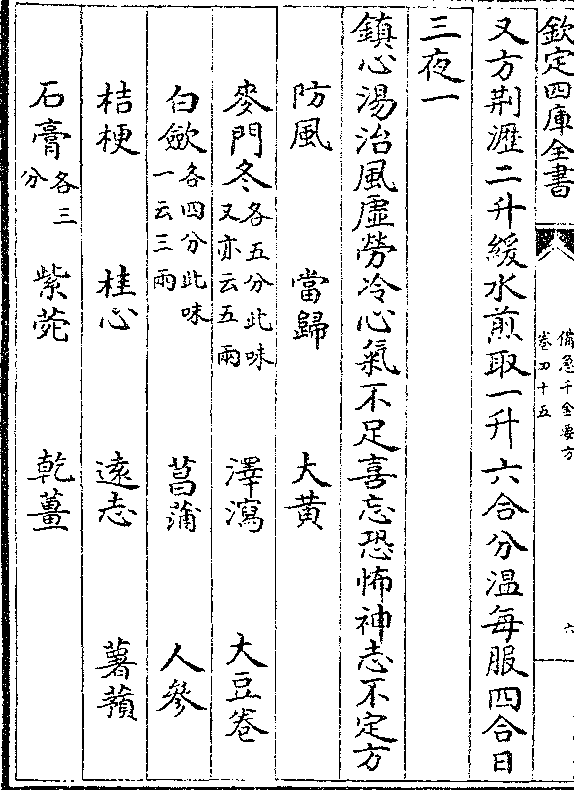 欽定四庫全書
備急千金要方
卷四十五
六
又方荆瀝二升緩水煎取一升六合分温每服四合日
三夜一
鎮心湯治風虛勞冷心氣不足喜忘恐怖神志不定方
防風 當歸 大黄
麥門冬各五分此味又亦云五兩 澤瀉 大豆卷
白歛各四分此味一云三兩 菖蒲 人參
桔梗 桂心 遠志 薯蕷
石膏各三分 紫菀 乾薑